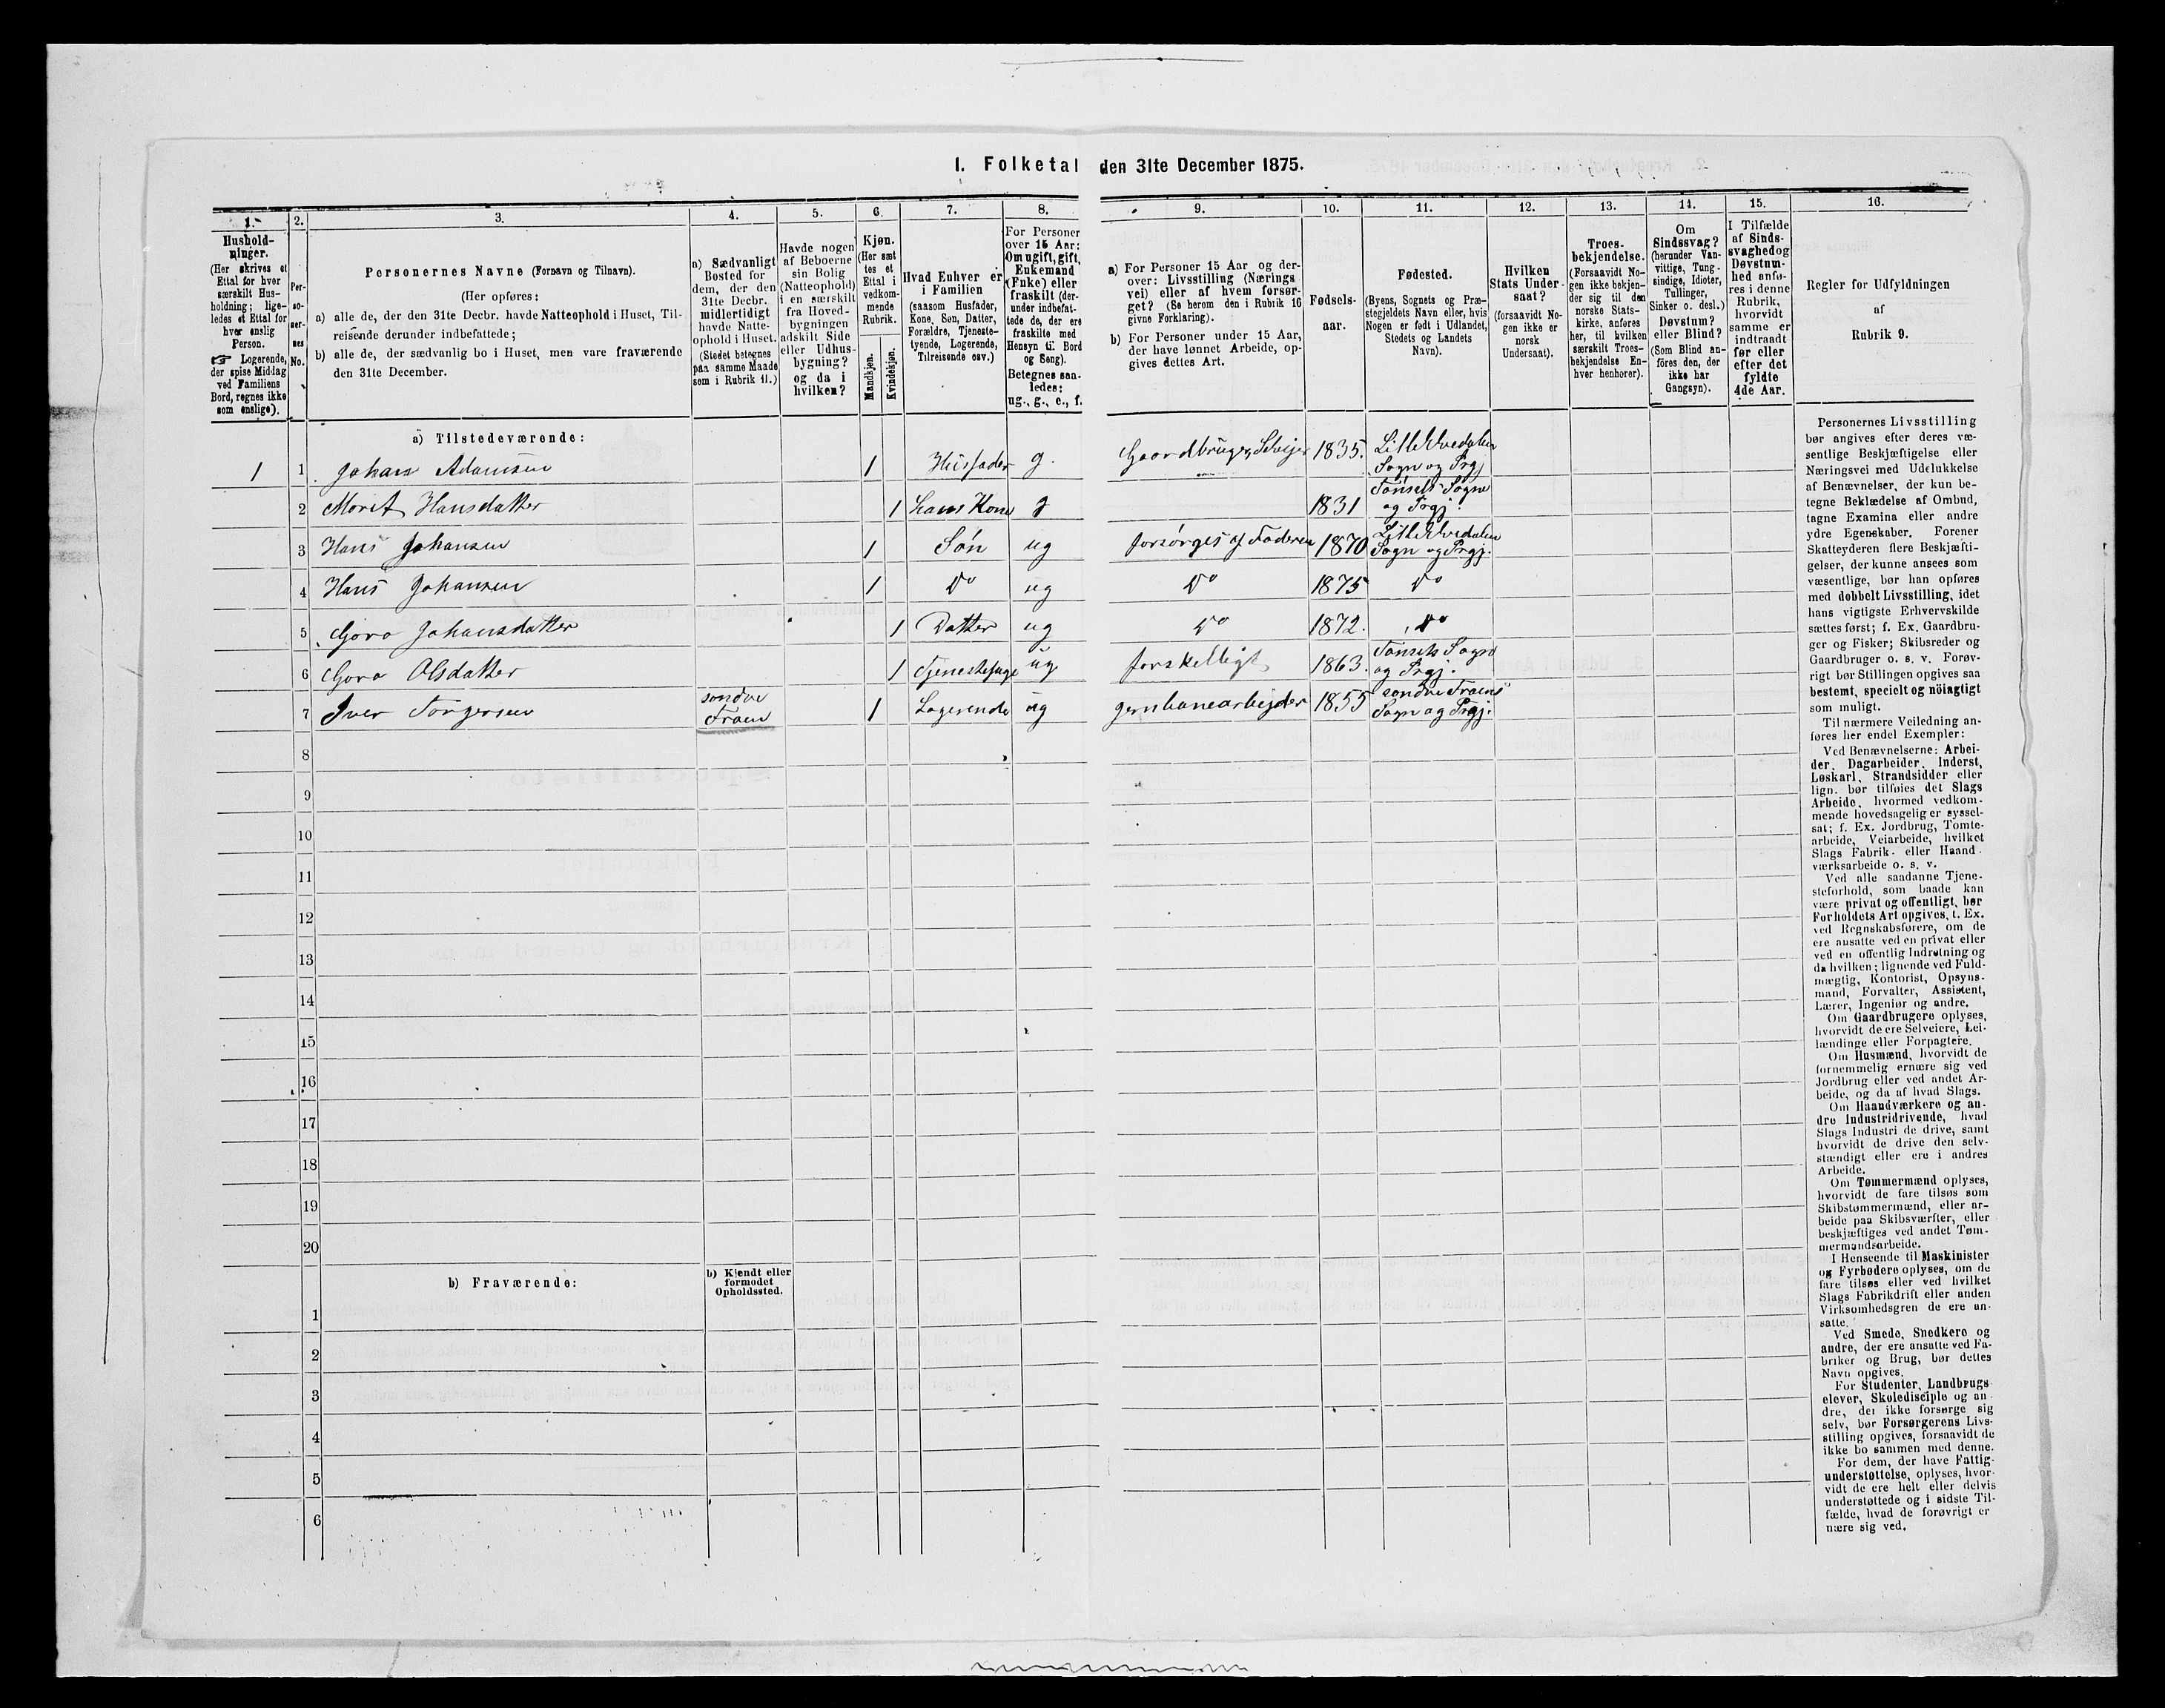 I. Folketal den 31te December 1875.
1.
2.
3.
4.
5.
6.
7.
8.
9.
10.
11.
12.
13.
14.
15.
16.
Hushold-
ninger.
(Her skrives et
Ettal for hver
særskilt Hus-
holdning; lige-
ledes et Ettal for
hver enslig
Person.
☞ Logerende,
der spise Middag
ved Familiens
Bord, regnes ikke
som enslige).
Per-
so-
ner-
nes
No.
Personernes Navne (Fornavn og Tilnavn).
(Her opføres:
a) alle de, der den 31te Decbr. havde Natteophold i Huset, Til-
reisende derunder indbefattede;
b) alle de, der sædvanlig bo i Huset, men vare fraværende
den 31te December.
a) Sædvanligt
Bosted for
dem, der den
31te Decbr.
midlertidigt
havde Natte-
ophold i Huset.
(Stedet betegnes
paa samme Maade
som i Rubrik 11.)
Havde nogen
af Beboerne
sin Bolig
(Natteophold)
i en særskilt
fra Hoved-
bygningen
adskilt Side
eller Udhus-
bygning?
og da i
hvilken?
Kjøn.
(Her sæt
tes et
Ettal i
vedkom-
mende
Rubrik.
Mandkjøn.
Kvindekjøn.
Hvad Enhver er
i Familien
(saasom Husfader,
Kone, Søn, Datter,
Forældre, Tjeneste-
tyende, Logerende,
Tilreisende osv.)
For Personer
over 15 Aar:
Om ugift, gift,
Enkemand
(Enke) eller
fraskilt (der-
under indbefat-
tede de, der ere
fraskilte med
Hensyn til Bord
og Seng).
Betegnes saa-
ledes:
ug., g., e., f.
a) For Personer 15 Aar og der-
over: Livsstilling (Nærings-
vei) eller af hvem forsør-
get? (Se herom den i Rubrik 16
givne Forklaring).
b) For Personer under 15 Aar,
der have lønnet Arbeide, op-
gives dettes Art.
Fødsels-
aar.
Fødested.
(Byens, Sognets og Præ-
stegjeldets Navn eller, hvis
Nogen er født i Udlandet,
Stedets og Landets
Navn).
Hvilken
Stats Under-
saat?
(forsaavidt No-
gen ikke er
norsk
Undersaat).
Troes-
bekjendelse.
(Forsaavidt No-
gen ikke bekjen-
der sig til den
norske Stats-
kirke, anføres
her, til hvilken
særskilt Troes-
bekjendelse En-
hver henhører).
Om
Sindssvag?
(herunder Van-
vittige, Tung-
sindige, Idioter,
Tullinger,
Sinker o. desl.)
Døvstum?
eller Blind?
(Som Blind an-
føres den, der
ikke har
Gangsyn).
I Tilfælde
af Sinds-
svaghed og
Døvstum-
hed anfø-
res i denne
Rubrik,
hvorvidt
samme er
indtraadt
før eller
efter det
fyldte
4de Aar.
Regler for Udfyldningen
af
Rubrik 9.
a) Tilstedeværende:
1 1 Johan Adamsen 1 Husfader g. Gaardbruger, Selvejer 1835. Lille Elvedalen
Sogn og Prgj
2 Marit Hansdatter 1 hans Kone g 1831 Tönsets Sogn
og Prgj.
3 Hans Johansen 1 Sön ug forsörges af Faderen 1870 Lille Elvedalen
Sogn og Prgj.
4 Hans Johansen 1 Do ug Do 1875 Do
5 Goro Johansdatter 1 Datter ug Do 1872. Do
6 Goro Olsdatter 1 Tjenestepige ug forskelligt 1863. Tönsets Sogn
og Prgj.
7 Iver Torgersen söndre
Fron 1 Logerende ug jernbanearbejder 1855 söndre Frons
Sogn og Prgj.
8
9
10
11
12
13
14
15
16
17
18
19
20
b) Fraværende:
b) Kjendt eller
formodet
Opholdssted.
1
2
3
4
5
6
Personernes Livsstilling
bør angives efter deres væ-
sentlige Beskjæftigelse eller
Næringsvei med Udelukkelse
af Benævnelser, der kun be-
tegne Beklædelse af Ombud,
tagne Examina eller andre
ydre Egenskaber. Forener
Skatteyderen flere Beskjæfti-
gelser, der kunne ansees som
væsentlige, bør han opføres
med dobbelt Livsstilling, idet
hans vigtigste Erhvervskilde
sættes først; f. Ex. Gaardbru-
ger og Fisker; Skibsreder og
Gaardbruger o. s. v. Forøv-
rigt bør Stillingen opgives saa
bestemt, specielt og nöiagtigt
som muligt.
Til nærmere Veiledning an-
føres her endel Exempler:
Ved Benævnelserne: Arbei-
der, Dagarbeider, Inderst,
Løskarl, Strandsidder eller
lign. bør tilføies det Slags
Arbeide, hvormed vedkom-
mende hovedsagelig er syssel-
sat; f. Ex. Jordbrug, Tomte-
arbeide, Veiarbeide, hvilket
Slags Fabrik- eller Haand-
værksarbeide o. s. v.
Ved alle saadanne Tjene-
steforhold, som baade kan
være privat og offentligt, bør
Forholdets Art opgives, t. Ex.
ved Regnskabsførere, om de
ere ansatte ved en privat eller
ved en offentlig Indretning og
da hvilken; lignende ved Fuld-
mægtig, Kontorist, Opsyns-
mand, Forvalter, Assistent,
Lærer, Ingeniør og andre.
Om Gaardbrugere oplyses,
hvorvidt de ere Selveiere, Lei-
lændinge eller Forpagtere.
Om Husmænd, hvorvidt de
fornemmelig ernære sig ved
Jordbrug eller ved andet Ar-
beide, og da af hvad Slags.
Om Haandværkere og an-
dre Industridrivende, hvad
Slags Industri de drive, samt
hvorvidt de drive den selv-
stændigt eller ere i andres
Arbeide.
Om Tømmermænd oplyses,
hvorvidt de fare tilsøs som
Skibstømmermænd, eller ar-
beide paa Skibsværfter, eller
beskjæftiges ved andet Tøm-
mermandsarbeide.
I Henseende til Maskinister
og Fyrbødere oplyses, om de
fare tilsøs eller ved hvilket
Slags Fabrikdrift eller anden
Virksomhedsgren de ere an-
satte.
Ved Smede, Snedkere og
andre, der ere ansatte ved Fa-
briker og Brug, bør dettes
Navn opgives.
For Studenter, Landbrugs-
elever, Skoledisciple og an-
dre, der ikke forsørge sig
selv, bør Forsørgerens Livs-
stilling opgives, forsaavidt de
ikke bo sammen med denne.
For dem, der have Fattig-
understøttelse, oplyses, hvor-
vidt de ere helt eller delvis
understøttede og i sidste Til-
fælde, hvad de forøvrigt er
nære sig ved.